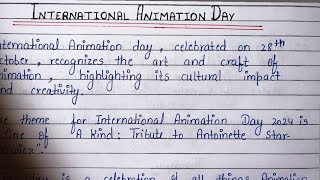 INTERNATIONAL ANIMATION DAY
nternational Animation day, celebrated on 28th
ctober, recognizes the art and craft of
nimation, highlighting its cultural impact
nd creativity.
he theme for International Animation Day 2024 is
One of A Kind: Tribute to Antoinette Star-
kiewicz".
day is a celebration of all things Animation